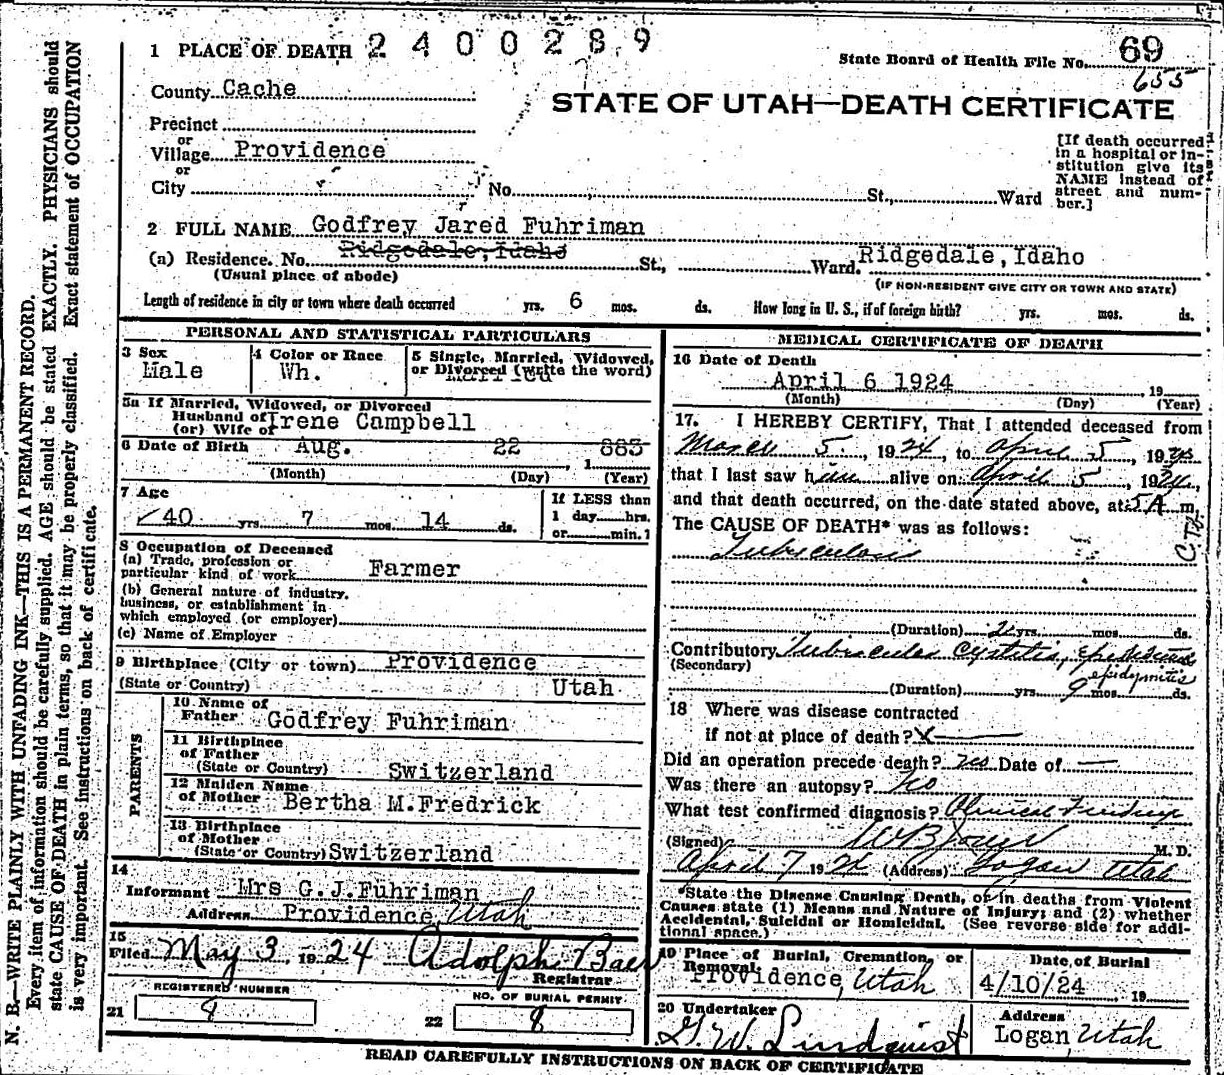 N. B.—WRITE PLAINLY WITH UNFADING INK—THIS IS A PERMANENT RECORD.
Every item of information should be carefully supplied. AGE should be stated EXACTLY. PHYSICIANS should
state CAUSE OF DEATH in plain terms, so that it may be properly classified. Exact statement of OCCUPATION
is very important. See instructions on back of certificate.
1 PLACE OF DEATH 2400289
State Board of Health File No. 69
655
County Cache
STATE OF UTAH—DEATH CERTIFICATE
Precinct
or
Village Providence
or
City No. St., Ward
[If death occurred
in a hospital or in-
stitution give its
NAME instead of
street and num-
ber.]
2 FULL NAME Godfrey Jared Fuhriman
(a) Residence. No. Ridgedale, Idaho St., Ward. Ridgedale, Idaho
(Usual place of abode) (IF NON-RESIDENT GIVE CITY OR TOWN AND STATE)
Length of residence in city or town where death occurred yrs. 6 mos. ds. How long in U. S., if of foreign birth? yrs. mos. ds.
PERSONAL AND STATISTICAL PARTICULARS
3 Sex
Male
4 Color or Race
Wh.
5 Single, Married, Widowed,
or Divorced (write the word)
Married
5a If Married, Widowed, or Divorced
Husband of
(or) Wife of Irene Campbell
6 Date of Birth Aug. 22, 1883
(Month) (Day) (Year)
7 Age
40 yrs. 7 mos. 14 ds.
If LESS than
1 day hrs.
or min.?
8 Occupation of Deceased
(a) Trade, profession or
particular kind of work Farmer
(b) General nature of industry,
business, or establishment in
which employed (or employer)
(c) Name of Employer
9 Birthplace (City or town) Providence
(State or Country) Utah
PARENTS
10 Name of
Father Godfrey Fuhriman
11 Birthplace
of Father
(State or Country) Switzerland
12 Maiden Name
of Mother Bertha M.Fredrick
13 Birthplace
of Mother
(State or Country) Switzerland
14
Informant Mrs G.J.Fuhriman
Address Providence, Utah
15
Filed May 3 1924 Adolph Baer
Registrar
REGISTERED NUMBER
21 8
NO. OF BURIAL PERMIT
22 8
MEDICAL CERTIFICATE OF DEATH
16 Date of Death
April 6 1924, 19
(Month) (Day) (Year)
17. I HEREBY CERTIFY, That I attended deceased from
March 5, 1924, to April 5, 1924
that I last saw him alive on April 5, 1924,
and that death occurred, on the date stated above, at 5 A m.
The CAUSE OF DEATH* was as follows:
Tuberculosis
(Duration) 2 yrs. mos. ds.
Contributory Tubercular Cystitis,
(Secondary) epidymitis
(Duration) yrs. 9 mos. ds.
18 Where was disease contracted
if not at place of death? X
Did an operation precede death? no Date of —
Was there an autopsy? No
What test confirmed diagnosis? Clinical Findings
(Signed) M. D.
April 7 1924 (Address) Logan Utah
*State the Disease Causing Death, or in deaths from Violent
Causes state (1) Means and Nature of Injury; and (2) whether
Accidental, Suicidal or Homicidal. (See reverse side for addi-
tional space.)
19 Place of Burial, Cremation, or
Removal
Providence, Utah
Date of Burial
4/10/24 19
20 Undertaker
G. W. Lindquist
Address
Logan, Utah
READ CAREFULLY INSTRUCTIONS ON BACK OF CERTIFICATE